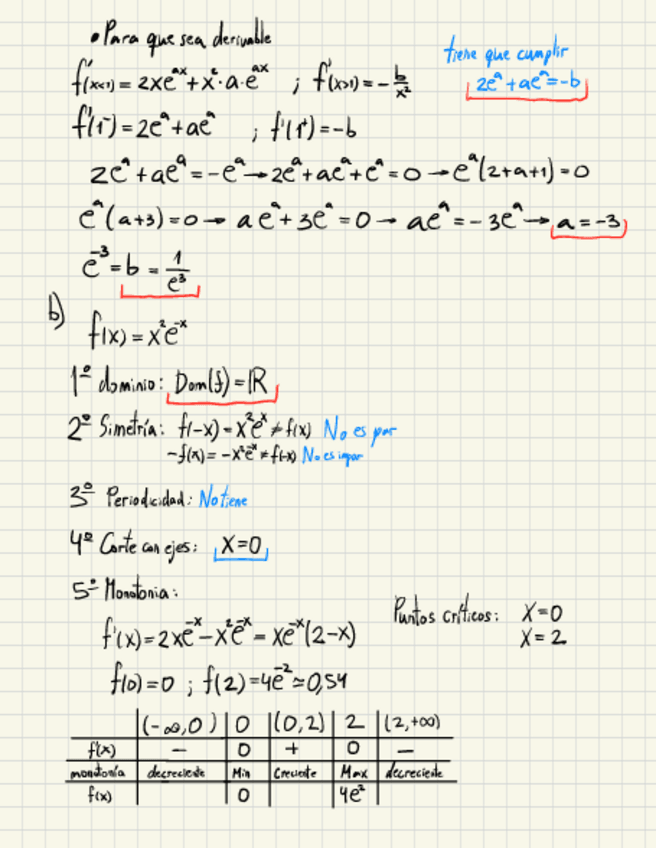 • Para que sea derivable
f'(x<1) = 2xe^ax + x²·a·e^ax ; f'(x>1) = -b/x²
tiene que cumplir
2e^a + ae^a = -b
f'(1⁻) = 2e^a + ae^a ; f'(1⁺) = -b
2e^a + ae^a = -e^a → 2e^a + ae^a + e^a = 0 → e^a(2+a+1) = 0
e^a(a+3) = 0 → ae^a + 3e^a = 0 → ae^a = -3e^a → a = -3
e^-3 = b = 1/e³
b)
f(x) = x²e^-x
1º dominio: Dom(f) = ℝ
2º Simetría: f(-x) = x²e^x ≠ f(x) No es par
-f(x) = -x²e^-x ≠ f(-x) No es impar
3º Periodicidad: No tiene
4º Corte con ejes: X=0
5º Monotonia:
Puntos críticos: X=0
X=2
f'(x) = 2xe^-x - x²e^-x = xe^-x(2-x)
f(0) = 0 ; f(2) = 4e^-2 ≃ 0,54
(-∞,0) 0 (0,2) 2 (2,+∞)
f'(x) − 0 + 0 −
monotonía decreciente Min Creciente Max decreciente
f(x) 0 4e^-2